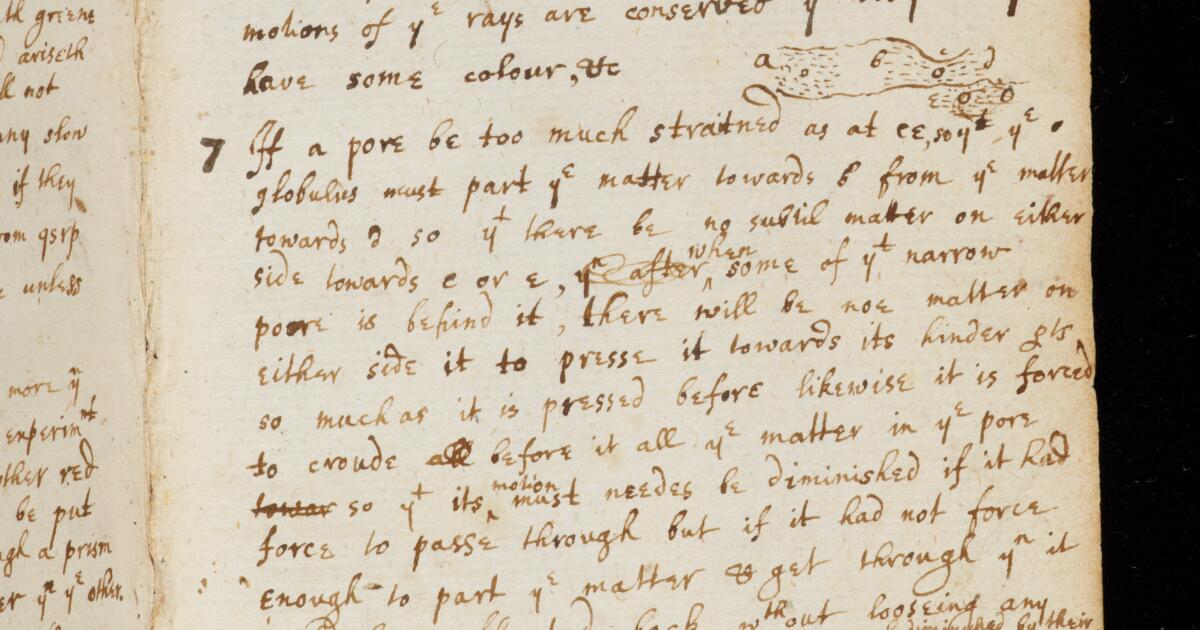 lk greene
ariseth
ll not
any slow
if they
rom qsrp
unless
more yn
experimnt.
other red
be put
ugh a prism
er yn ye other.
motions of ye rays are conserved
have some colour, &c
a b c d
e
7 If a pore be too much straitned as at ce, so yt ye
globulus must part ye matter towards b from ye matter
towards d so yt there be no subtil matter on either
side towards c or e, yn after when some of yt narrow
poore is behind it, there will be noe matter on
either side it to presse it towards its hinder pts
so much as it is pressed before likewise it is forced
to croude all before it all ye matter in ye pore
towar so yt its motion must needes be diminished if it had
force to passe through but if it had not force
enough to part ye matter & get through yn it
back without looseing any
diminished by their